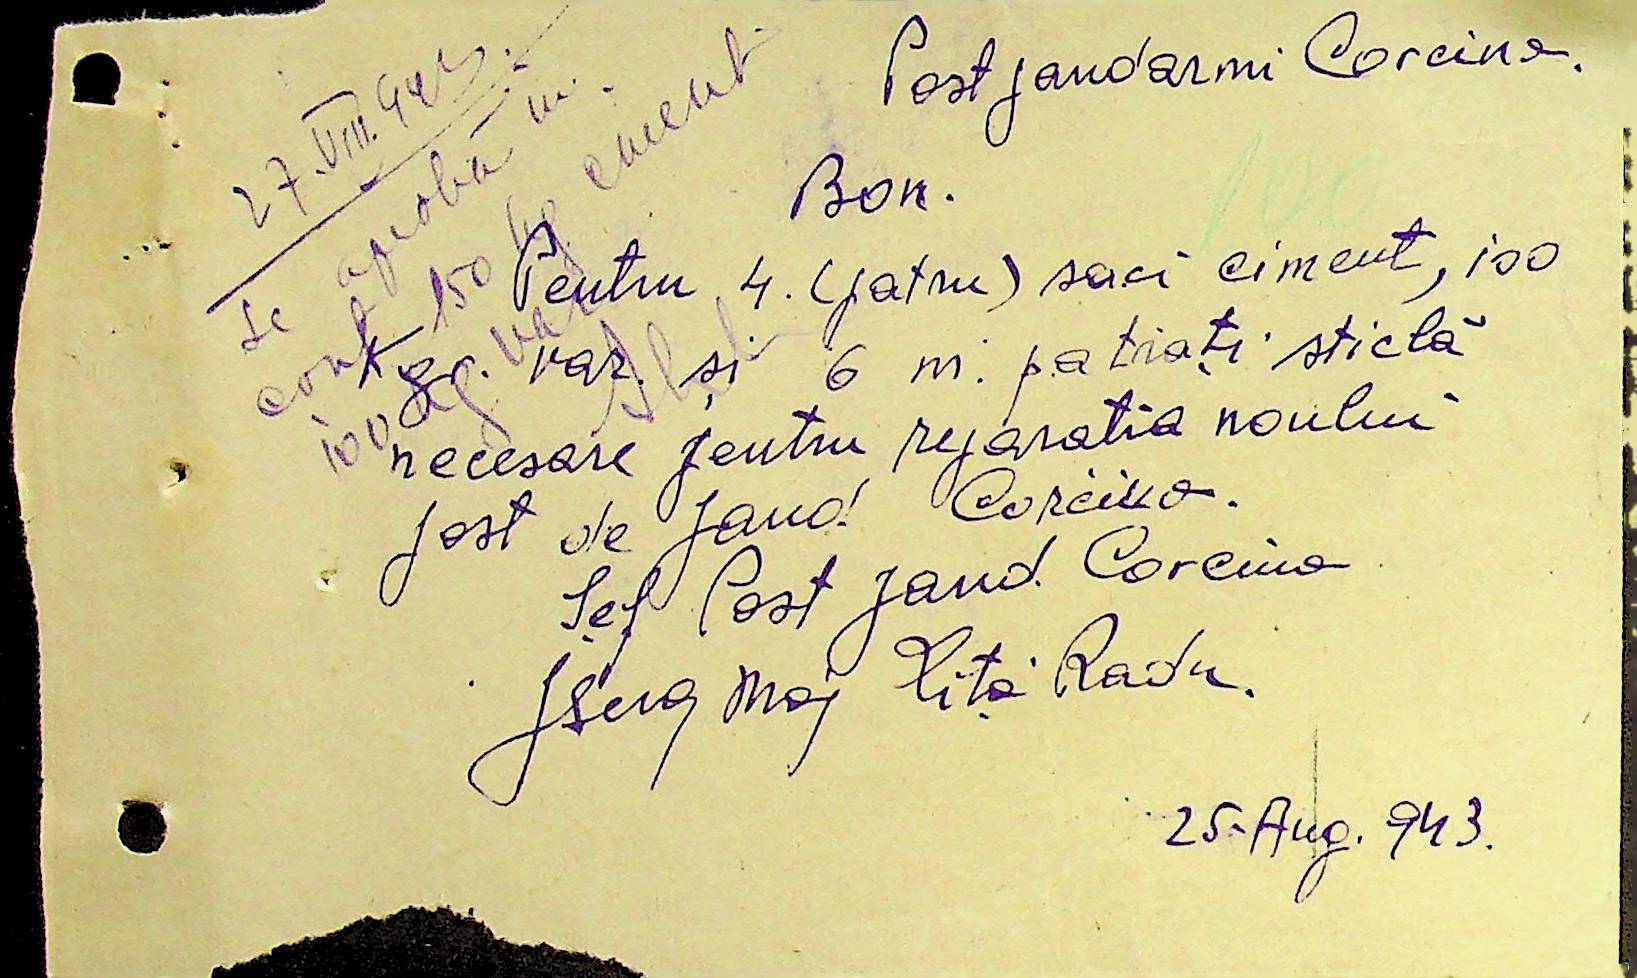 Post jandarmi Corcina.
Bon.
Pentru 4. (patru) saci ciment, 100
Kgr. var. și 6 m. patrați sticlă
necesare pentru reparatia noului
post de Jand. Corcina.
Șef Post Jand. Corcina
Serg Maj Liță Radu.
25. Aug. 943.
27.VIII.943.
se aprobă in
cont 150 kg ciment
100 kg. var
100